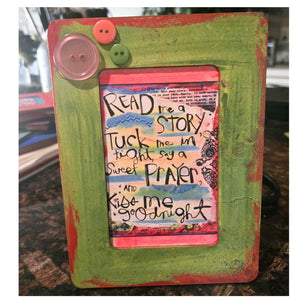 READ me a
STORY,
Tuck me in
tight say a
Sweet PRAYER,
and
Kiss me
goodnight